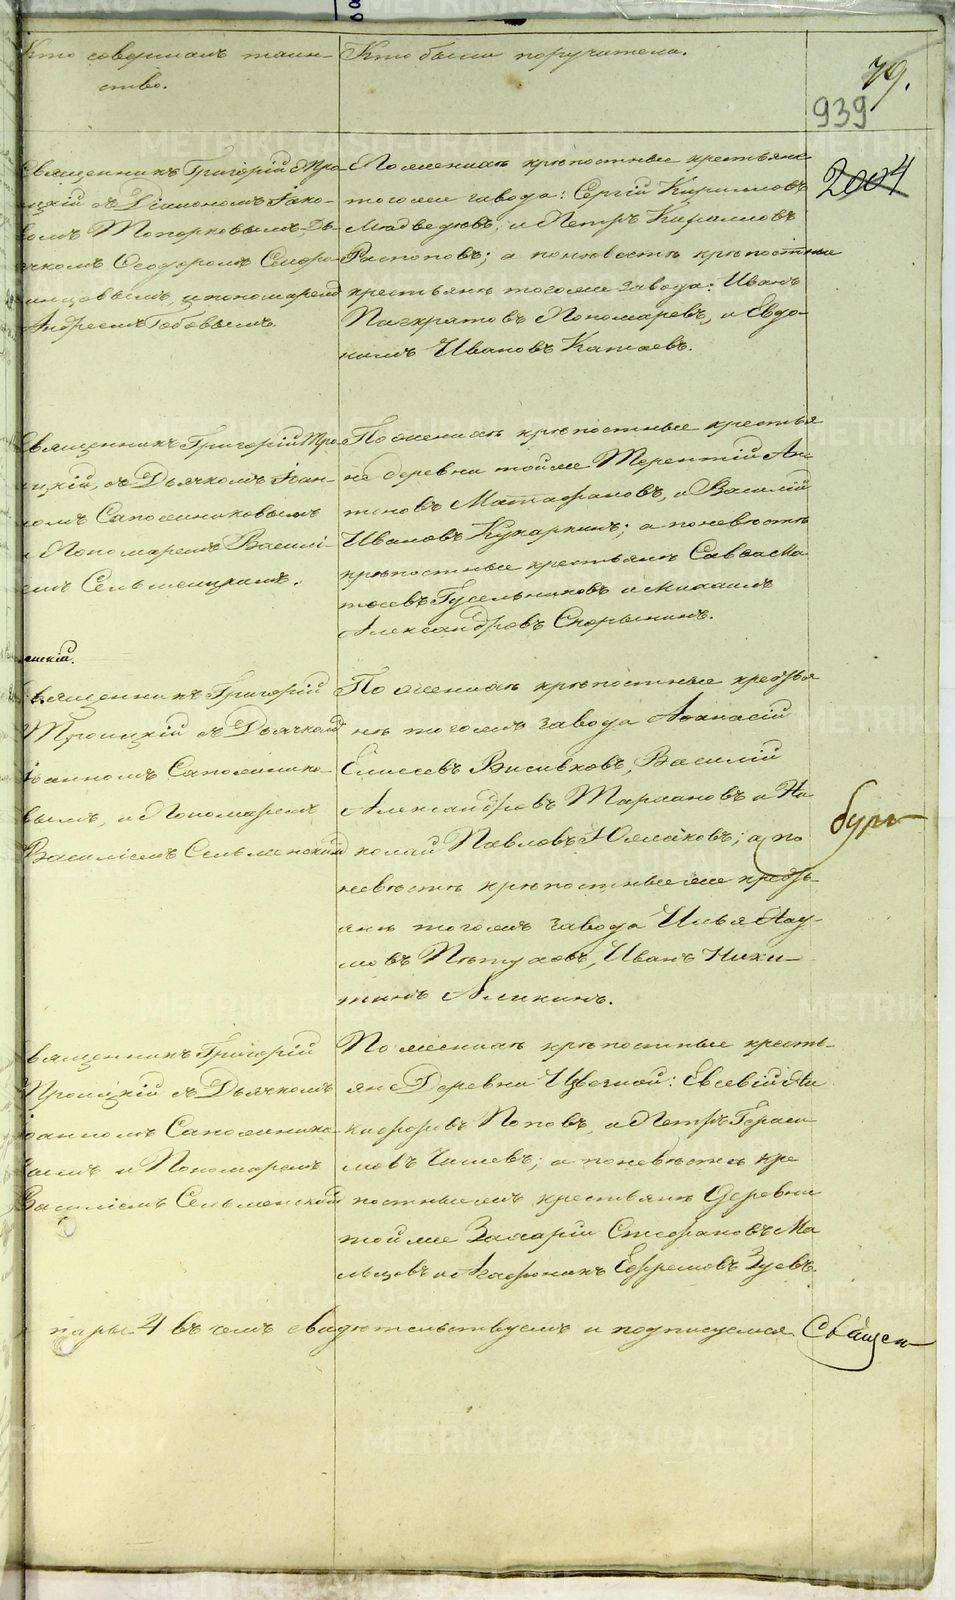 Кто совершалъ таин-
ство.
Кто были поручители.
79.
939
2004
Священникъ Григорій Тро-
ицкій съ Діакономъ Іако-
вомъ Топорковымъ, Дья-
чкомъ Ѳеодоромъ
и пономаремъ
Андреемъ Бобовымъ.
По женихѣ крѣпостные крестьяне
тогоже завода: Сергій Кириловъ
Медведевъ, и Петръ Кириловъ
Распоповъ; а по невѣстѣ крѣпостные
крестьяне тогоже завода: Иванъ
Панкратовъ Пономаревъ, и Евдо-
кимъ Ивановъ Катаевъ.
Священникъ Григорій Тро-
ицкій, съ Дьячкомъ Іоан-
номъ Сапожниковымъ
и Пономаремъ Василі-
емъ Сельменскимъ.
По женихѣ крѣпостные крестья
не деревни тойже Терентій Ан-
тоновъ Матафоновъ, и Василій
Ивановъ Кукаркинъ; а по невѣстѣ
крѣпостные крестьяне Савва Ма
тѳеевъ Гусельниковъ и Михаилъ
Александровъ Скорынинъ.
Священникъ Григорій
Троицкій съ Дьячкомъ
Іоанномъ Сапожнико-
вымъ, и Пономаремъ
Василіемъ Сельменскимъ
По женихѣ крѣпостные кресть
не тогожъ завода Аѳанасій
Елисеевъ Висивковъ, Василій
Александровъ Таршановъ и Ни
колай Павловъ Южаковъ; а по
невѣстѣ крѣпостные же кресть-
яне тогожъ завода Илья Нау-
мовъ Пѣтуховъ, Иванъ Ники-
тинъ Аликинъ.
бургъ
Священникъ Григорій
Троицкій съ Дьячкомъ
Іоанномъ Сапожнико-
вымъ и Пономаремъ
Василіемъ Сельменскимъ
По женихѣ крѣпостные кресть-
яне Деревни Цвѣтной: Евсевій Ни
кифоровъ Поповъ, и Петръ Гераси
мовъ Чижевъ; а по невѣстѣ крѣ
постныежъ крестьяне деревни
тойже Захарій Стефановъ Ма
льцовъ и Агафоникъ Ефремовъ Зуевъ.
пары 4 въ чемъ свидѣтельствуемъ и подписуемся. Священ